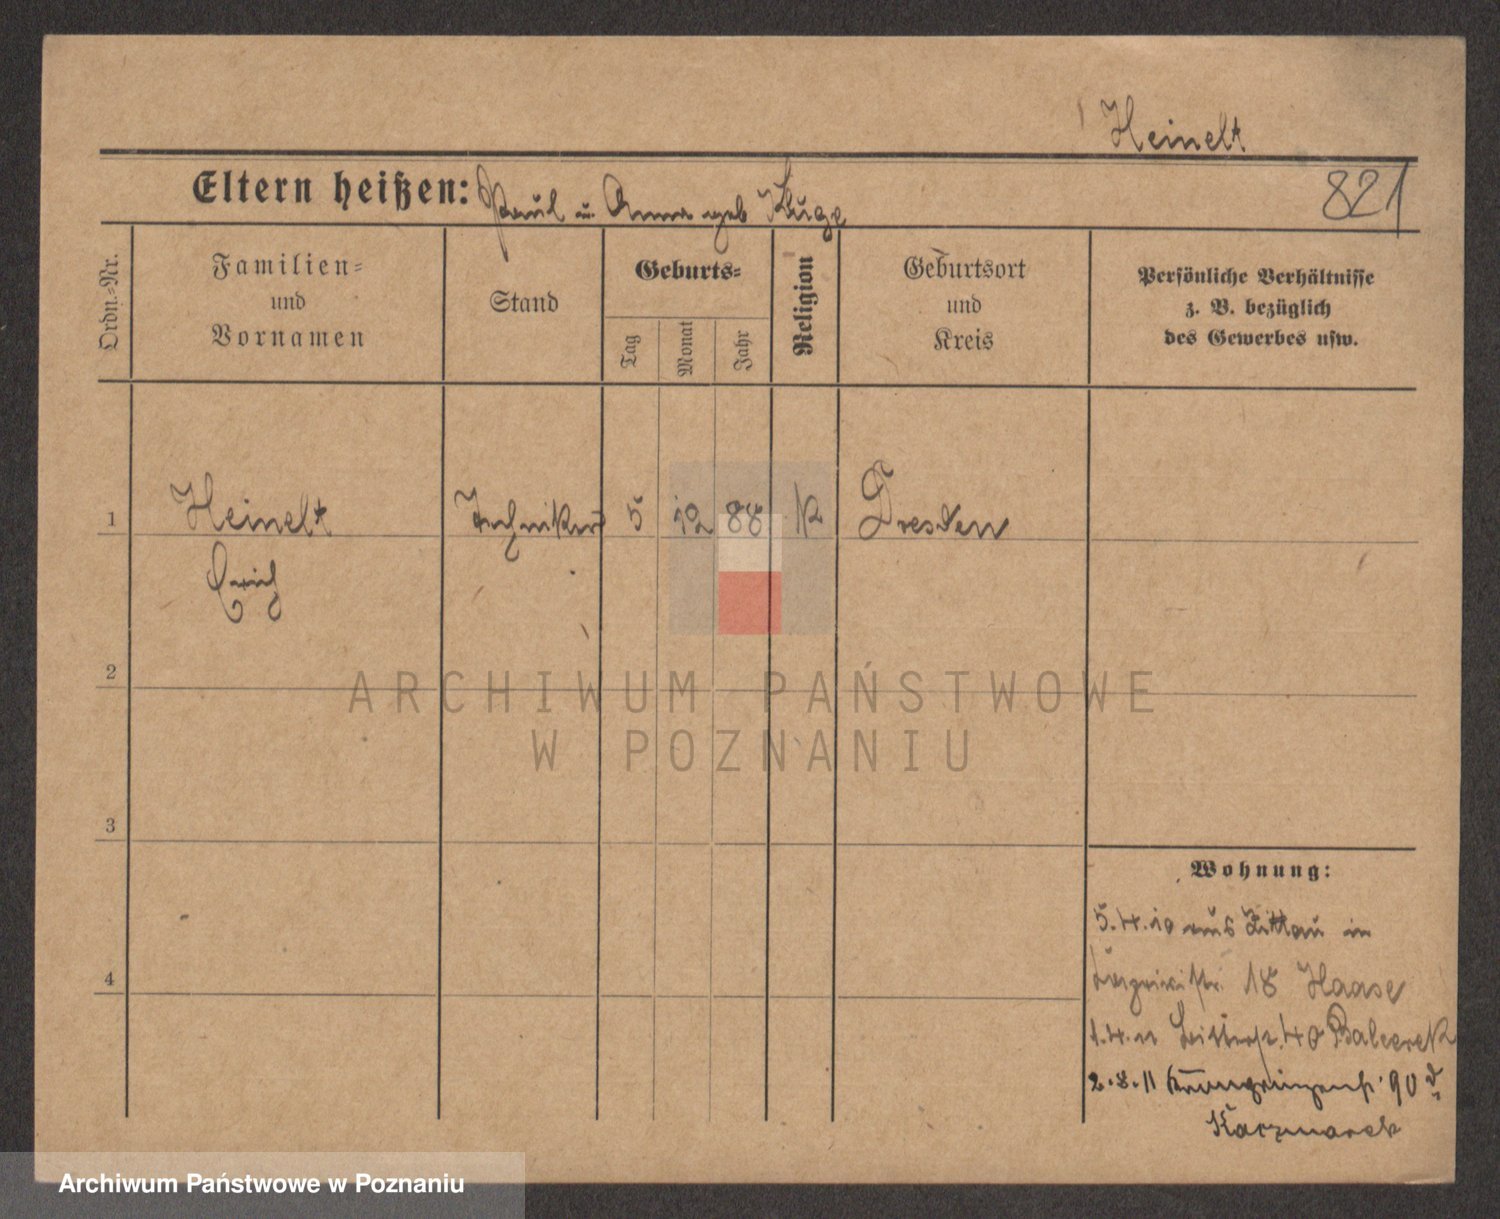 Heinelt
Eltern heißen: Paul u. Anna geb Kluge
821
Ordn.-Nr.
Familien-
und
Vornamen
Stand
Geburts-
Tag
Monat
Jahr
Religion
Geburtsort
und
Kreis
Persönliche Verhältnisse
z. B. bezüglich
des Gewerbes usw.
1 Heinelt Techniker 5 12 88 K Dresden
Erich
2
ARCHIWUM PAŃSTWOWE
W POZNANIU
3
Wohnung:
5.4.10 aus Zittau in
18 Haase
4
1.4.11 40 Balcerek
2.8.11 Kronprinzenst. 90
Kaczmarek
Archiwum Państwowe w Poznaniu